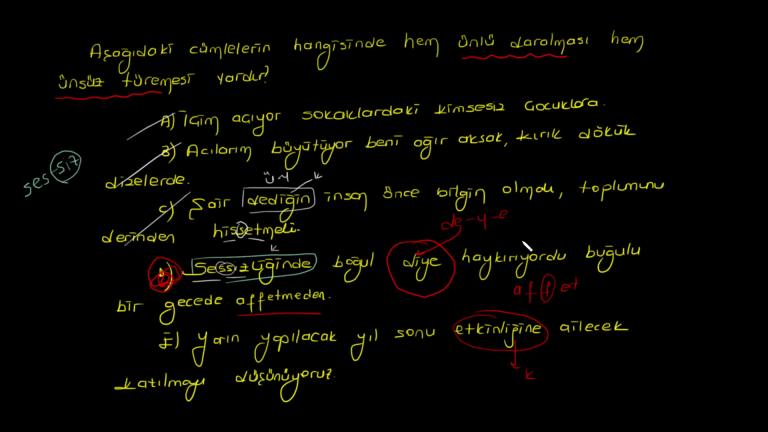 Aşağıdaki cümlelerin hangisinde hem ünlü daralması hem
ünsüz türemesi vardır?
A) İçim acıyor sokaklardaki kimsesiz çocuklara.
B) Acılarım büyütüyor beni ağır aksak, kırık dökük
dizelerde.
ses-siz
ü.y k
C) Şair dediğin insan önce bilgin olmalı, toplumunu
derinden hissetmeli.
de-y-e
k
D) Sessizliğinde boğul diye haykırıyordu buğulu
af f et
bir gecede affetmeden.
E) Yarın yapılacak yıl sonu etkinliğine ailecek
k
katılmayı düşünüyoruz.